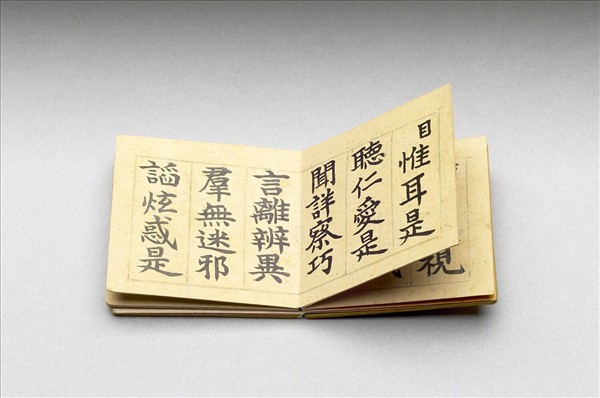 目惟耳是
聽仁愛是
聞詳察巧
言離辨異
羣無迷邪
謟炫惑是
視